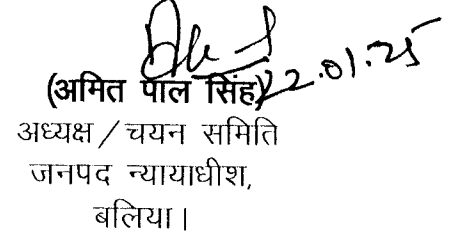 22.01.25
(अमित पाल सिंह)
अध्यक्ष / चयन समिति
जनपद न्यायाधीश,
बलिया।